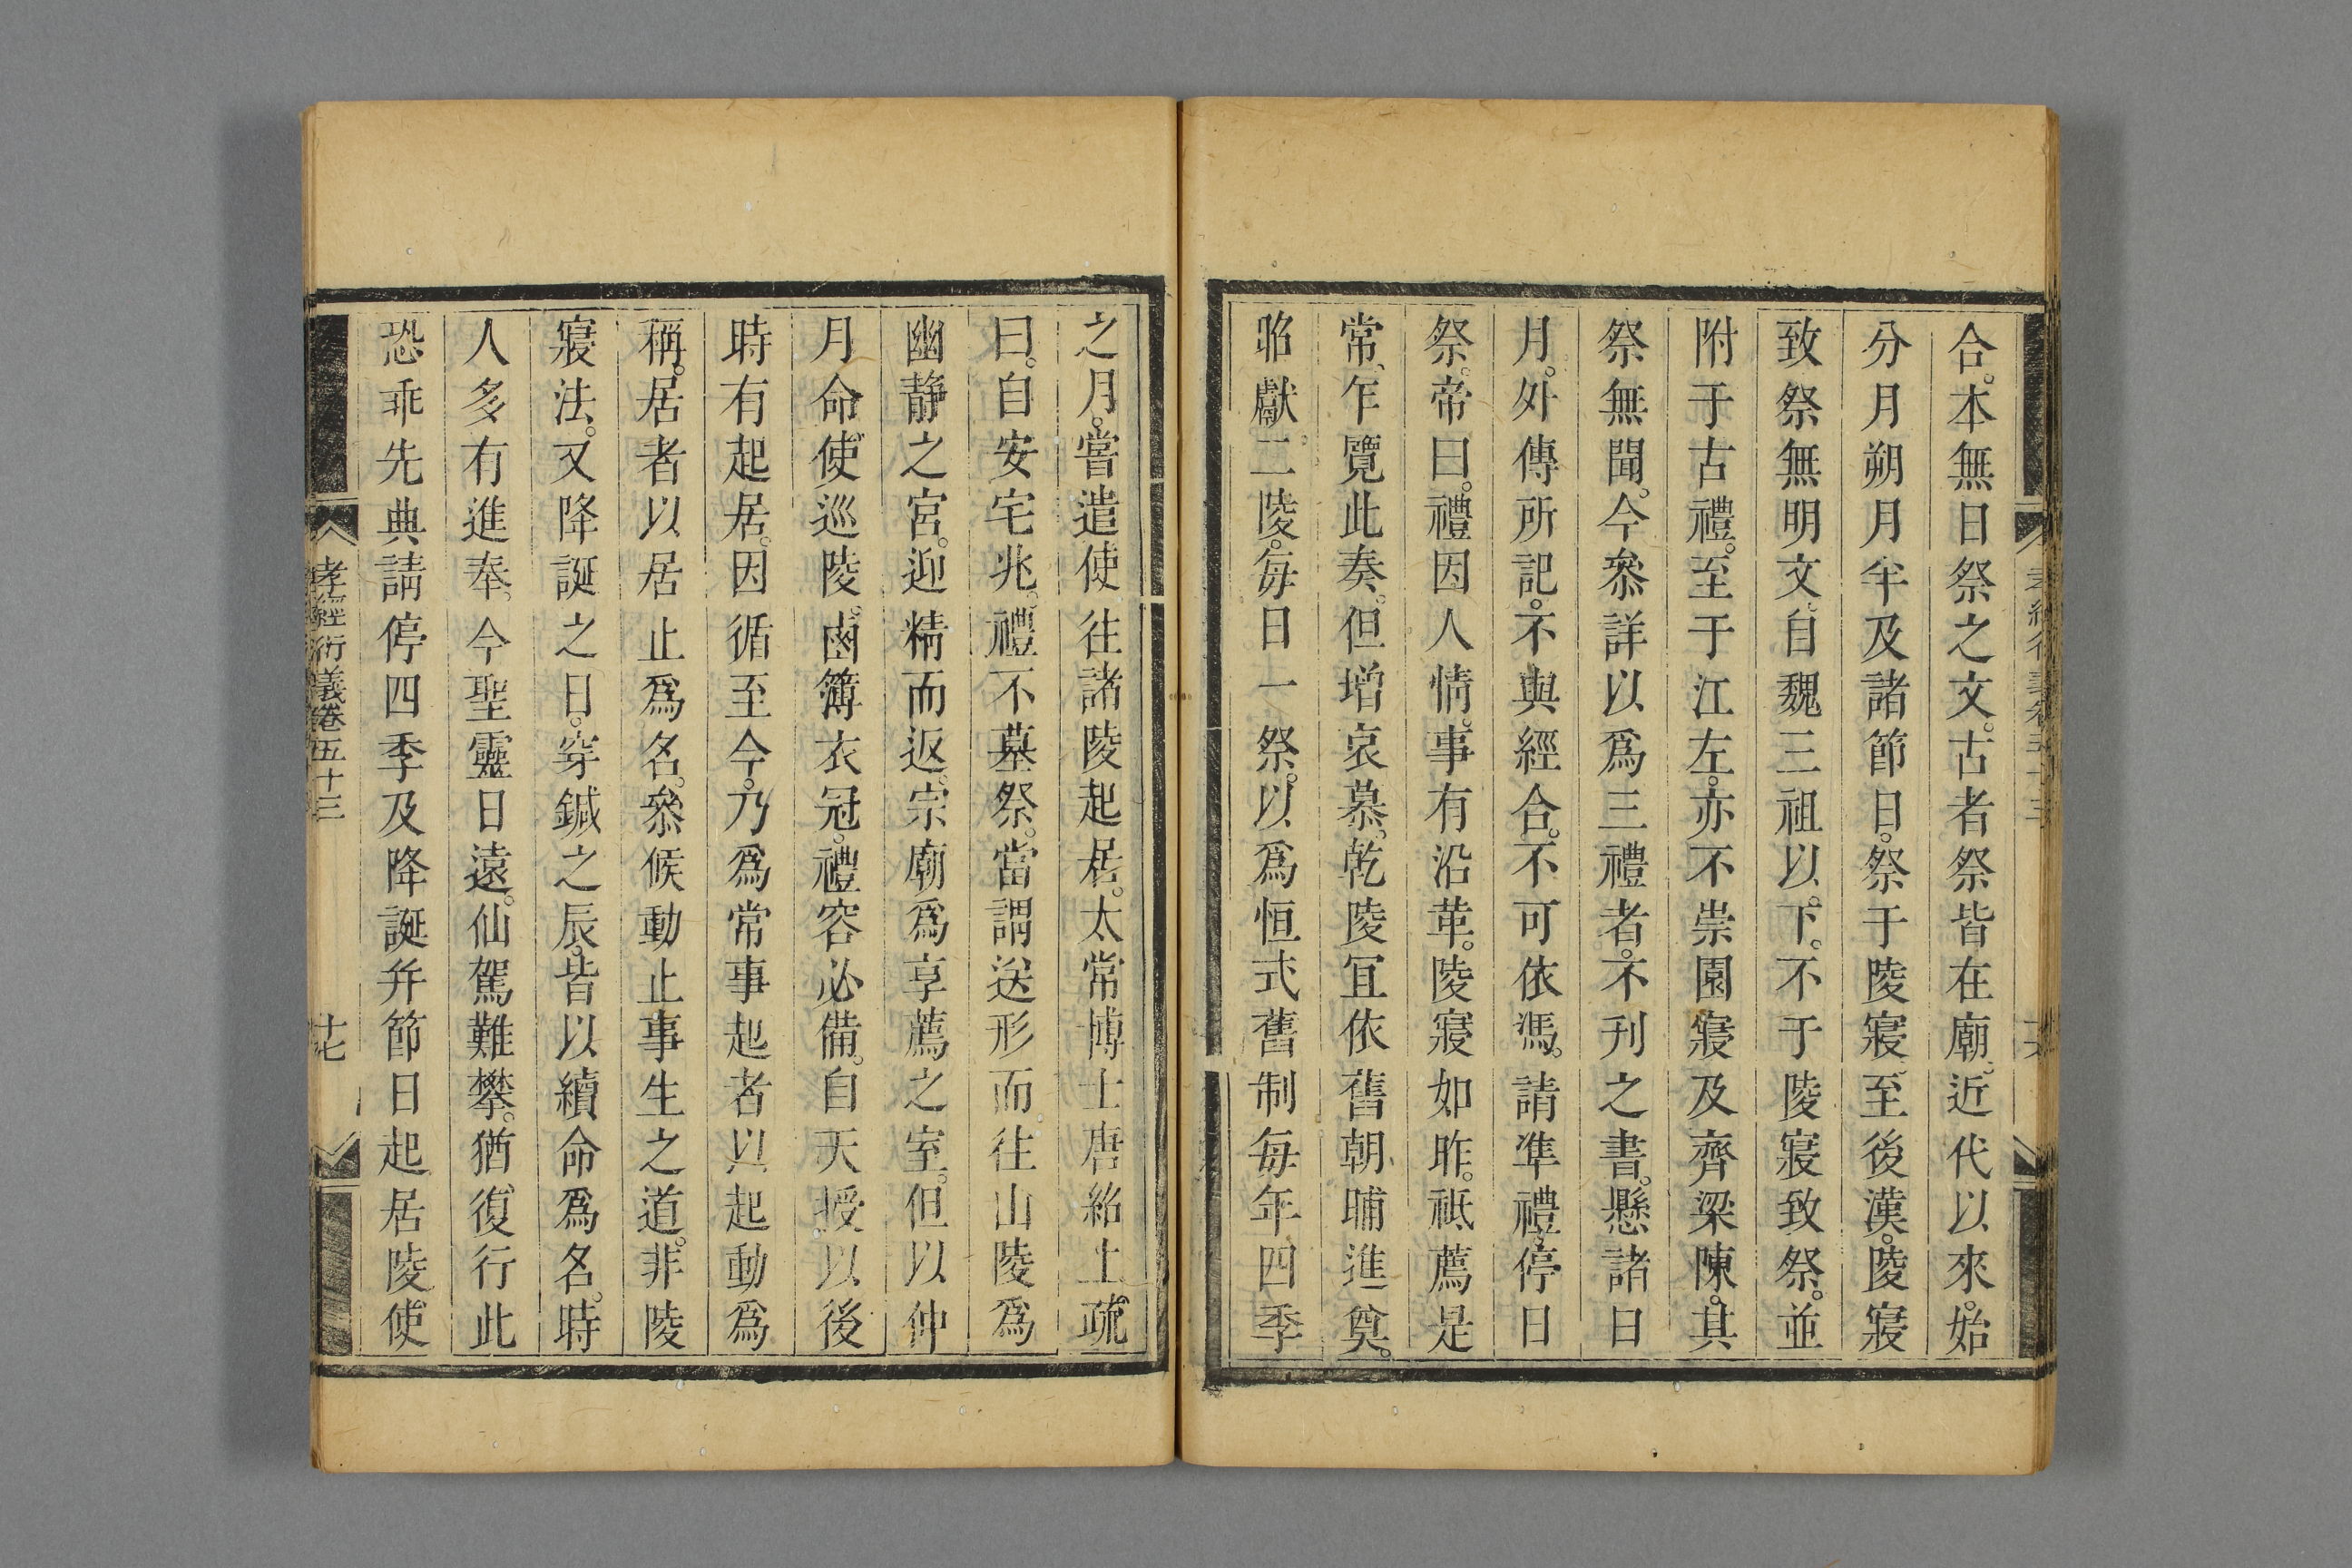 合。本無日祭之文。古者祭皆在廟。近代以來。始
分月朔月半及諸節日。祭于陵寢。至後漢。陵寢
致祭無明文。自魏三祖以下。不于陵寢致祭。並
附于古禮。至于江左。亦不崇園寢及齊梁陳。其
祭無聞。今叅詳以爲三禮者。不刊之書。懸諸日
月。外傳所記。不與經合。不可依馮。請準禮。停日
祭。帝曰。禮因人情。事有沿革。陵寢如昨。祗薦是
常、乍覽此奏。但增哀慕。乾陵冝依舊朝晡進奠。
昭獻。二陵。每日一祭。以爲恒式舊制每年四季
之月。嘗遣使往諸陵起居。太常博士唐紹上疏
曰。自安宅兆。禮不墓祭。當謂送形而往山陵爲
幽静之宮。迎精而返。宗廟爲享薦之室。但以仲
月命使巡陵。鹵簿衣冠。禮容必備。自天授以後
時有起居。因循至今。乃爲常事起者以起動爲
稱。居者以居止爲名。叅候動止事生之道。非陵
寢法。又降誕之日。穿鍼之辰。皆以續命爲名。時
人多有進奉。今聖靈日遠。仙駕難攀。猶復行此
恐乖先典請停四季及降誕并節日起居陵使
孝經衍義卷五十三
十七